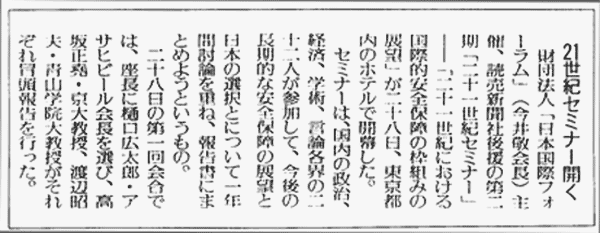 21世紀セミナー開く
財団法人「日本国際フォ
ーラム」（今井敬会長）主
催、読売新聞社後援の第二
期「二十一世紀セミナー」
―「二十一世紀における
国際的安全保障の枠組みの
展望」が二十八日、東京都
内のホテルで開幕した。
セミナーは、国内の政治、
経済、学術、言論各界の二
十二人が参加して、今後の
長期的な安全保障の展望と
日本の選択とについて一年
間討論を重ね、報告書にま
とめようというもの。
二十八日の第一回会合で
は、座長に樋口広太郎・ア
サヒビール会長を選び、高
坂正堯・京大教授、渡辺昭
夫・青山学院大教授がそれ
ぞれ冒頭報告を行った。